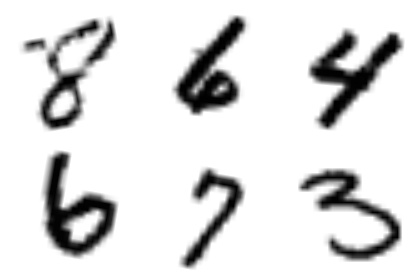 8 6 4
6 7 3